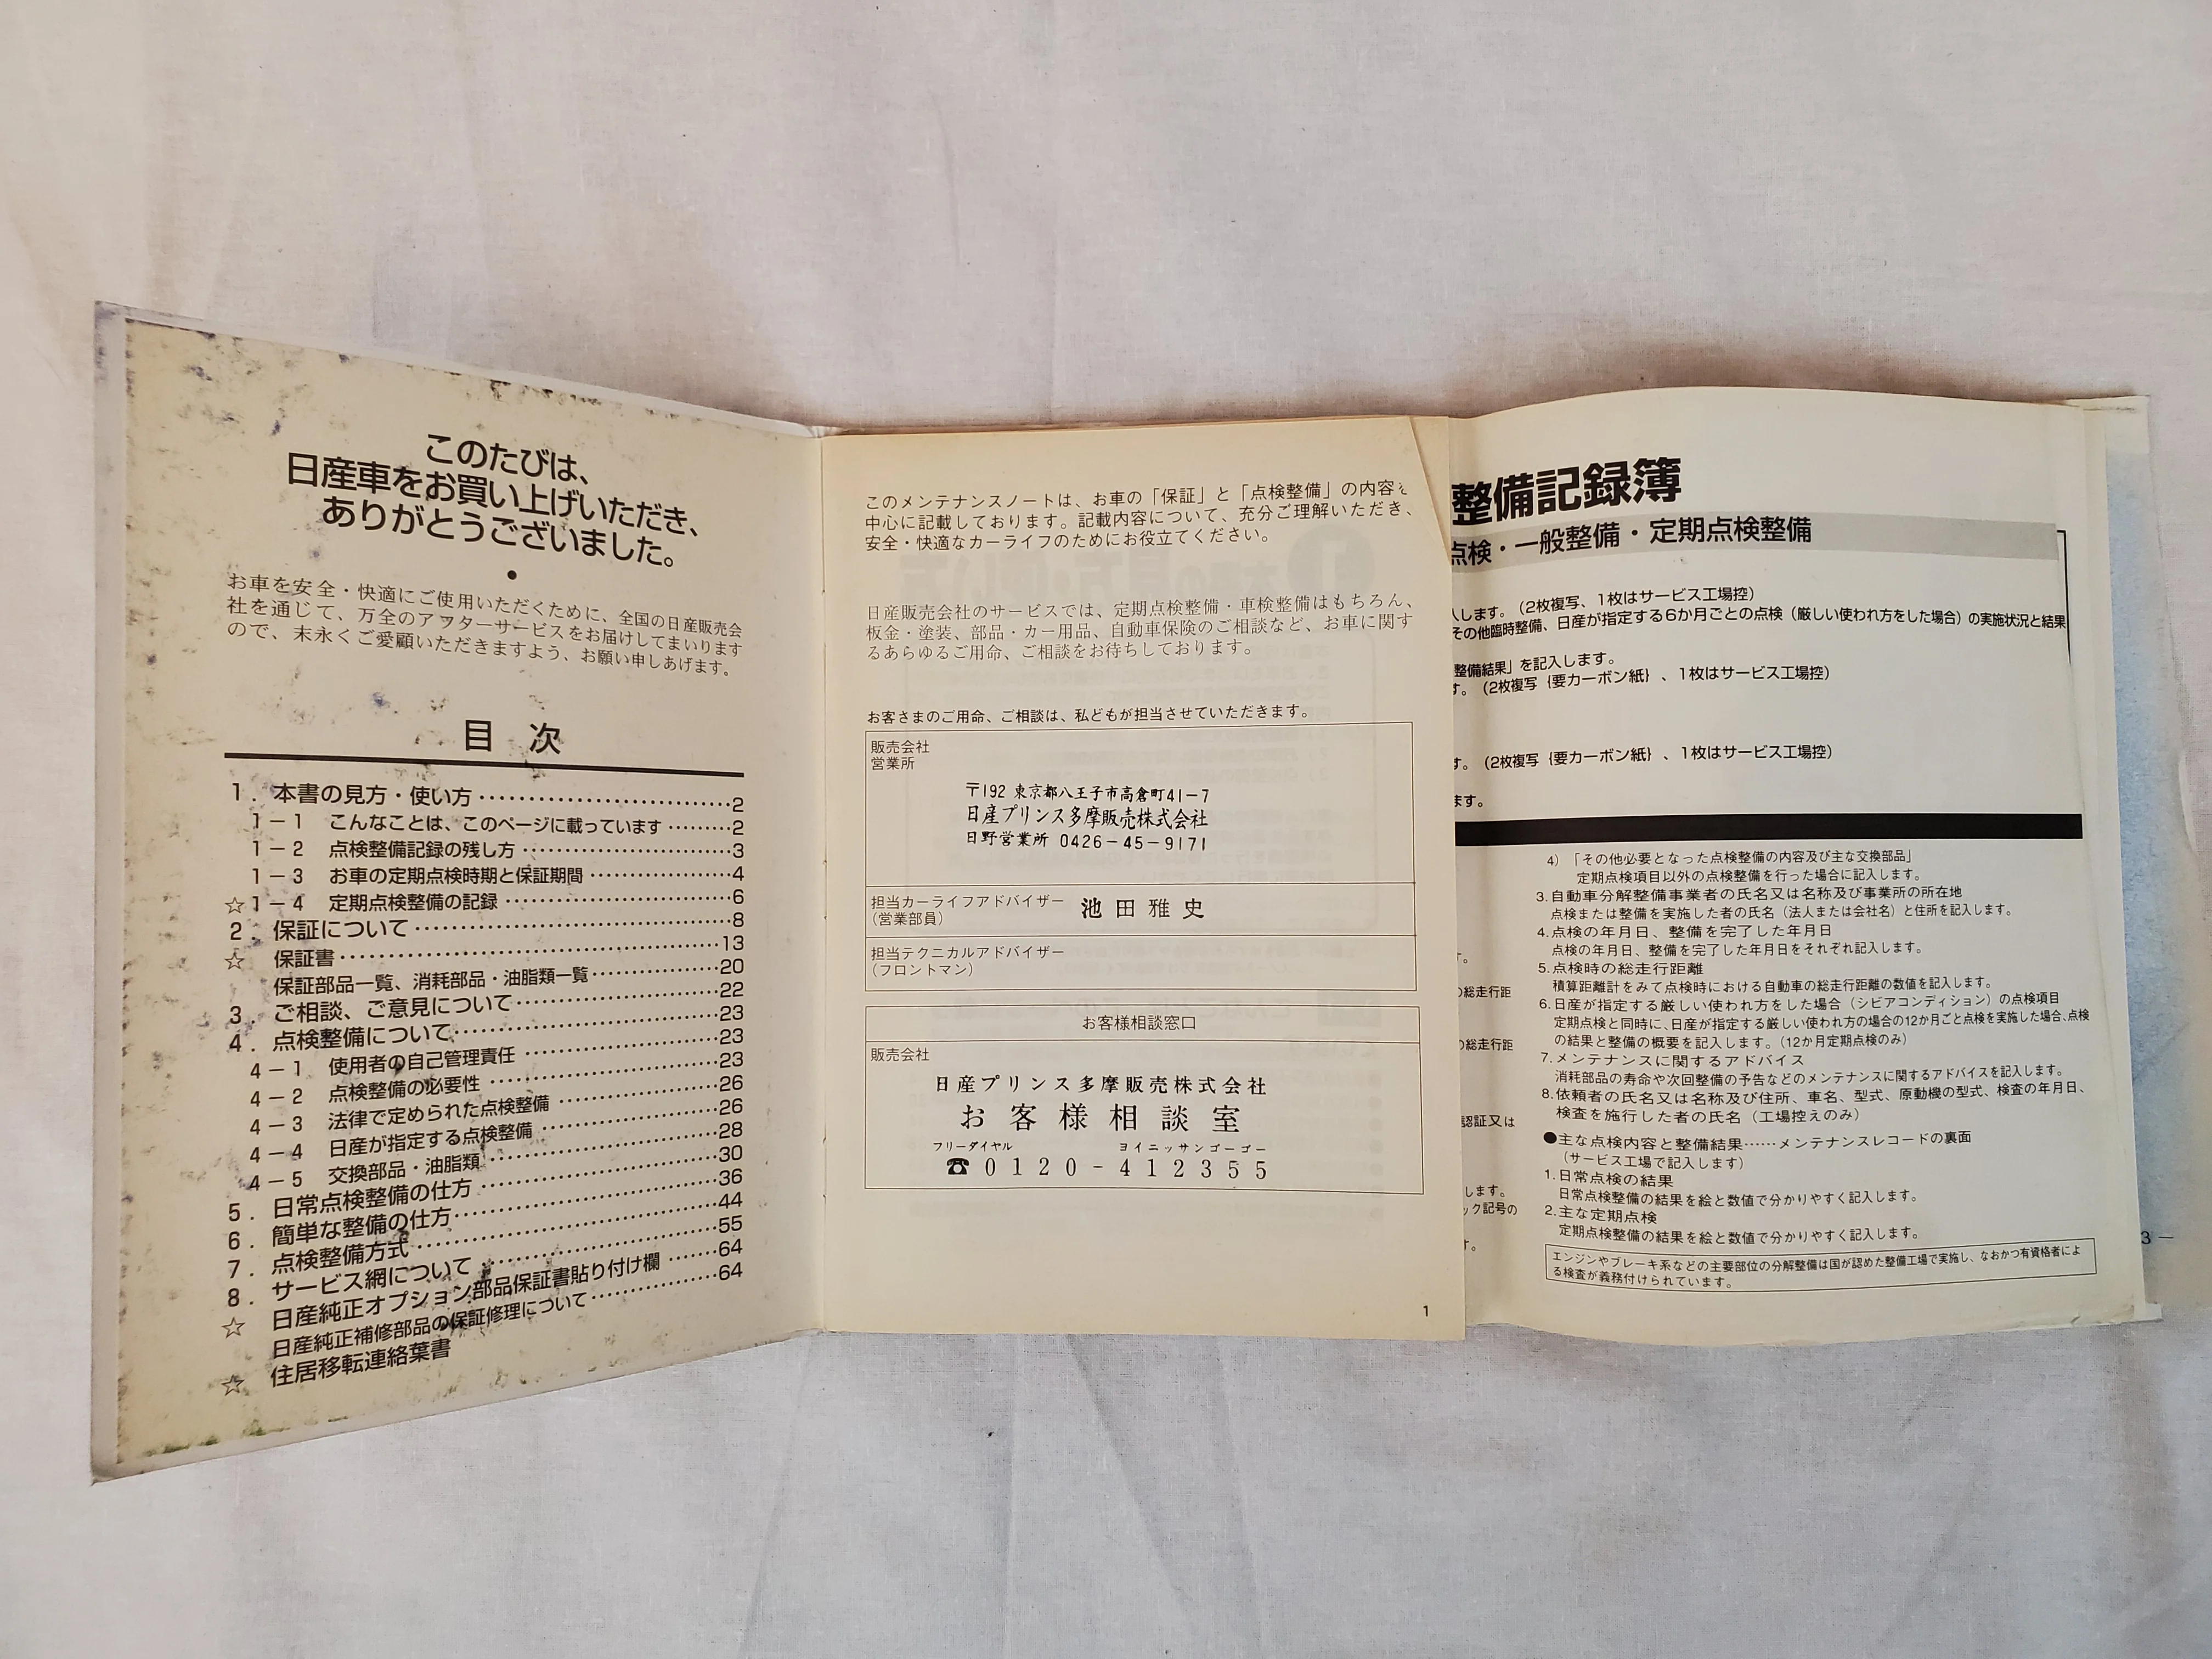 このたびは、
日産車をお買い上げいただき、
ありがとうございました。
●
お車を安全・快適にご使用いただくために、全国の日産販売会
社を通じて、万全のアフターサービスをお届けしてまいります
ので、末永くご愛顧いただきますよう、お願い申しあげます。
目 次
1．本書の見方・使い方……………………………2
1－1 こんなことは、このページに載っています………2
1－2 点検整備記録の残し方………………………3
1－3 お車の定期点検時期と保証期間………………4
☆1－4 定期点検整備の記録…………………………6
2．保証について……………………………………8
☆ 保証書……………………………………………13
保証部品一覧、消耗部品・油脂類一覧……………20
3．ご相談、ご意見について………………………22
4．点検整備について………………………………23
4－1 使用者の自己管理責任………………………23
4－2 点検整備の必要性……………………………23
4－3 法律で定められた点検整備…………………26
4－4 日産が指定する点検整備……………………26
4－5 交換部品・油脂類……………………………28
5．日常点検整備の仕方……………………………30
6．簡単な整備の仕方………………………………36
7．点検整備方式……………………………………44
8．サービス網について……………………………55
☆ 日産純正オプション部品保証書貼り付け欄………64
日産純正補修部品の保証修理について……………64
☆ 住居移転連絡葉書
このメンテナンスノートは、お車の「保証」と「点検整備」の内容を
中心に記載しております。記載内容について、充分ご理解いただき、
安全・快適なカーライフのためにお役立てください。
日産販売会社のサービスでは、定期点検整備・車検整備はもちろん、
板金・塗装、部品・カー用品、自動車保険のご相談など、お車に関す
るあらゆるご用命、ご相談をお待ちしております。
お客さまのご用命、ご相談は、私どもが担当させていただきます。
販売会社
営業所
〒192 東京都八王子市高倉町41－7
日産プリンス多摩販売株式会社
日野営業所 0426－45－9171
担当カーライフアドバイザー
（営業部員）
池田雅史
担当テクニカルアドバイザー
（フロントマン）
お客様相談窓口
販売会社
日産プリンス多摩販売株式会社
お客様相談室
フリーダイヤル ヨイニッサンゴーゴー
☎0120-412355
1
整備記録簿
点検・一般整備・定期点検整備
入します。（2枚複写、1枚はサービス工場控）
その他臨時整備、日産が指定する6か月ごとの点検（厳しい使われ方をした場合）の実施状況と結果
整備結果」を記入します。
す。（2枚複写｛要カーボン紙｝、1枚はサービス工場控）
す。（2枚複写｛要カーボン紙｝、1枚はサービス工場控）
ます。
す。
の総走行距
の総走行距
認証又は
します。
ック記号の
す。
4）「その他必要となった点検整備の内容及び主な交換部品」
定期点検項目以外の点検整備を行った場合に記入します。
3.自動車分解整備事業者の氏名又は名称及び事業所の所在地
点検または整備を実施した者の氏名（法人または会社名）と住所を記入します。
4.点検の年月日、整備を完了した年月日
点検の年月日、整備を完了した年月日をそれぞれ記入します。
5.点検時の総走行距離
積算距離計をみて点検時における自動車の総走行距離の数値を記入します。
6.日産が指定する厳しい使われ方をした場合（シビアコンディション）の点検項目
定期点検と同時に、日産が指定する厳しい使われ方の場合の12か月ごと点検を実施した場合、点検
の結果と整備の概要を記入します。（12か月定期点検のみ）
7.メンテナンスに関するアドバイス
消耗部品の寿命や次回整備の予告などのメンテナンスに関するアドバイスを記入します。
8.依頼者の氏名又は名称及び住所、車名、型式、原動機の型式、検査の年月日、
検査を施行した者の氏名（工場控えのみ）
●主な点検内容と整備結果……メンテナンスレコードの裏面
（サービス工場で記入します）
1.日常点検の結果
日常点検整備の結果を絵と数値で分かりやすく記入します。
2.主な定期点検
定期点検整備の結果を絵と数値で分かりやすく記入します。
エンジンやブレーキ系などの主要部位の分解整備は国が認めた整備工場で実施し、なおかつ有資格者によ
る検査が義務付けられています。
3－